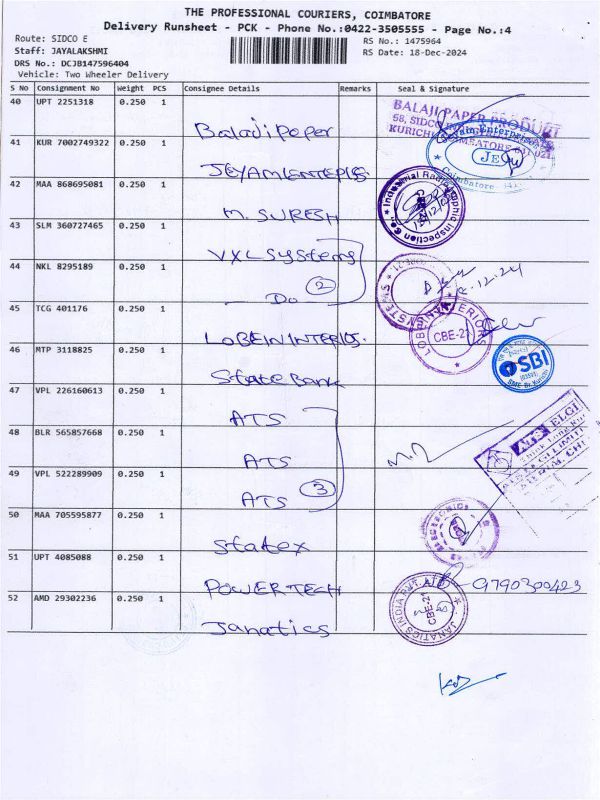 THE PROFESSIONAL COURIERS, COIMBATORE
Delivery Runsheet - PCK - Phone No.:0422-3505555 - Page No.:4
Route: SIDCO E
RS No.: 1475964
Staff: JAYALAKSHMI
RS Date: 18-Dec-2024
DRS No.: DCJB147596404
Vehicle: Two Wheeler Delivery
S No Consignment No Weight PCS Consignee Details Remarks Seal & Signature
40 UPT 2251318 0.250 1 Balaji Paper
BALAJI PAPER PRODUCT
58, SIDCO
41 KUR 7002749322 0.250 1 JEYAM ENTEPIES.
Jeyam Enterprises
Coimbatore
42 MAA 868695081 0.250 1 M. SURESH
Industrial Radiographic Inspection Co.
43 SLM 360727465 0.250 1 VXL Systems
44 NKL 8295189 0.250 1 — Do 2
SYSTEMS
45 TCG 401176 0.250 1 LOBEIN INTERIOS.
CBE-21
46 MTP 3118825 0.250 1 State Bank
SBI
47 VPL 226160613 0.250 1 ATS
ATS ELGI
48 BLR 565857668 0.250 1 ATS
49 VPL 522289909 0.250 1 ATS 3
50 MAA 705595877 0.250 1 Statex
51 UPT 4085088 0.250 1 POWERTECH
9790300423
52 AMD 29302236 0.250 1 Janatics
JANATICS INDIA
CBE-21